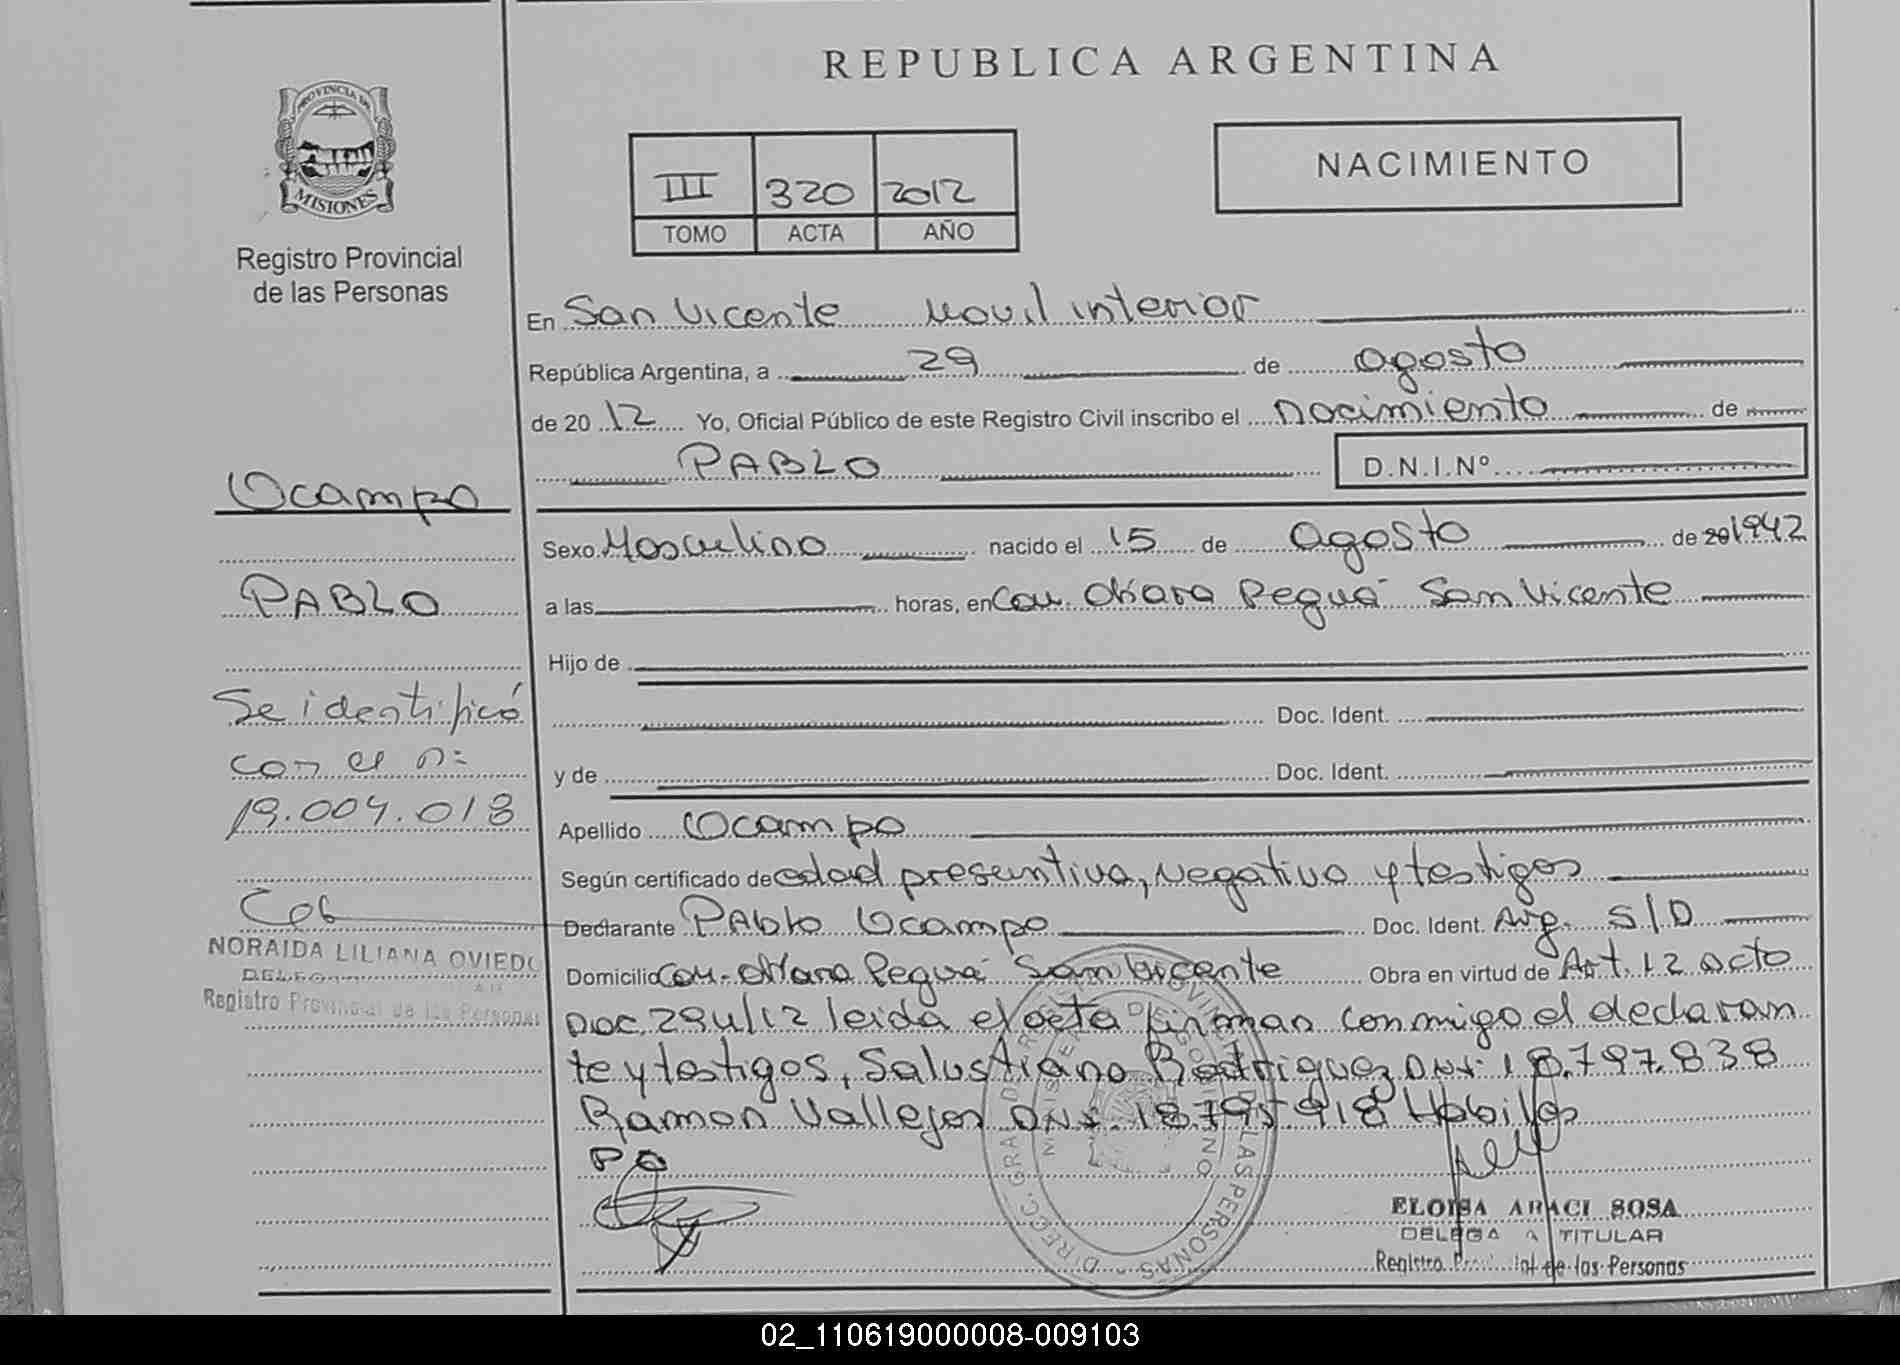 REPUBLICA ARGENTINA
PROVINCIA DE
MISIONES
Registro Provincial
de las Personas
NACIMIENTO
III 320 2012
TOMO ACTA AÑO
En San Vicente Movil interior
República Argentina, a 29 de agosto
de 2012 Yo, Oficial Público de este Registro Civil inscribo el nacimiento de
PABLO D.N.I.Nº
Ocampo
PABLO
Se identificó
con el nº
19.004.018
NORAIDA LILIANA OVIEDO
Registro Provincial de las Personas
Sexo Masculino nacido el 15 de agosto de 201942
a las horas, en Cou. Chara Pegua San Vicente
Hijo de
Doc. Ident.
y de Doc. Ident.
Apellido Ocampo
Según certificado de edad presuntiva, negativo y testigos
Declarante PAblo Ocampo Doc. Ident. Arg. S/D
Domicilio Cou. Chara Pegua San Vicente Obra en virtud de Art. 12 acto
Doc. 294/12 leida el acta firman conmigo el declaran
te y testigos, Salustiano Rodriguez DNI. 18.797.838
Ramon Vallejos DNI. 18.795.918 Habiles
PO
ELOISA ARACI SOSA
DELEGADA TITULAR
Registro Provincial de las Personas
02_110619000008-009103